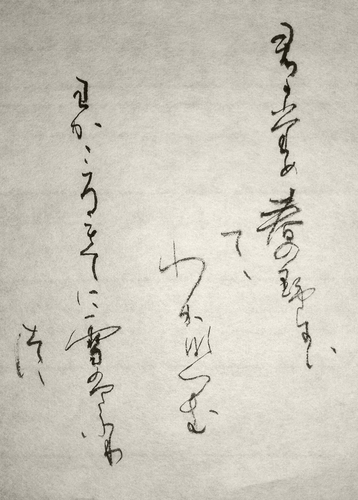 君かため春の野にい
てゝ
わか菜つむ
わかころもてに雪はふり
つゝ